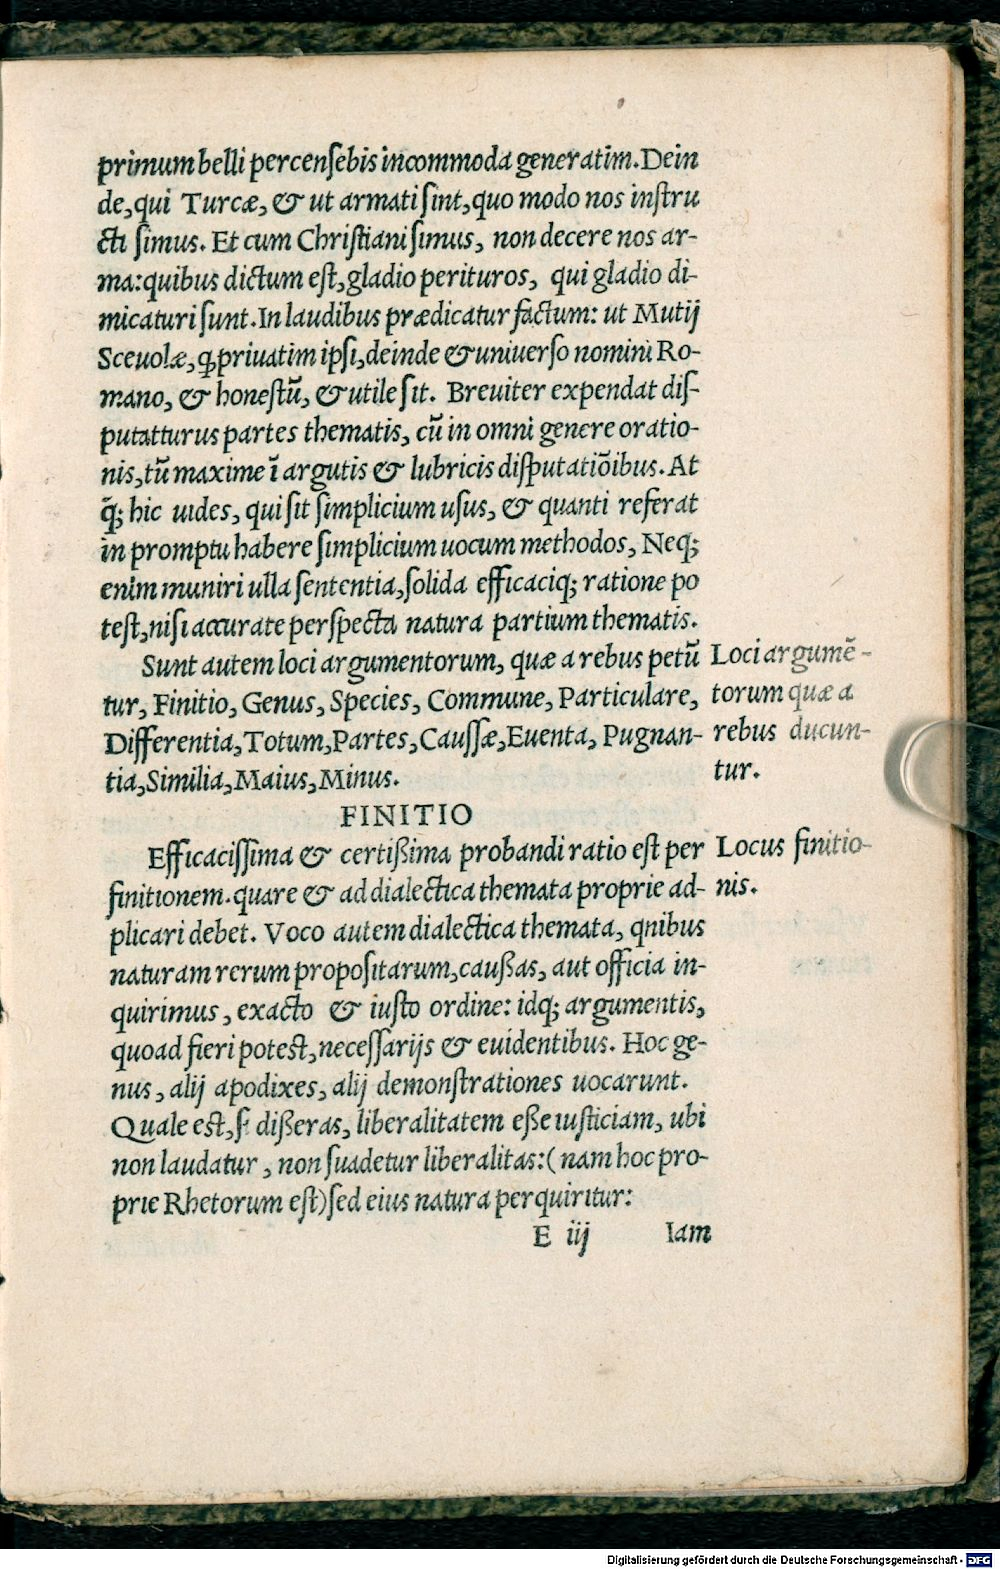 primum belli percenſebis incommoda generatim. Dein
de, qui Turcæ, & ut armati ſint, quo modo nos inſtru
cti ſimus. Et cum Chriſtiani ſimus, non decere nos ar-
ma: quibus dictum eſt, gladio perituros, qui gladio di-
micaturi ſunt. In laudibus prædicatur factum: ut Mutij
Sceuolæ, ꝙ priuatim ipſi, deinde & uniuerſo nomini Ro-
mano, & honeſtū, & utile ſit. Breuiter expendat diſ-
putatturus partes thematis, cū in omni genere oratio-
nis, tū maxime ī argutis & lubricis diſputatiōibus. At
q̃; hic uides, qui ſit ſimplicium uſus, & quanti referat
in promptu habere ſimplicium uocum methodos, Neq;
enim muniri ulla ſententia, ſolida efficaciq; ratione po
teſt, niſi accurate perſpecta natura partium thematis.
Sunt autem loci argumentorum, quæ a rebus petū
tur, Finitio, Genus, Species, Commune, Particulare,
Differentia, Totum, Partes, Cauſſæ, Euenta, Pugnan-
tia, Similia, Maius, Minus.
Loci argumē-
torum quæ a
rebus ducun-
tur.
FINITIO
Efficaciſſima & certißima probandi ratio eſt per
finitionem. quare & ad dialectica themata proprie ad-
plicari debet. Voco autem dialectica themata, qnibus
naturam rerum propoſitarum, caußas, aut officia in-
quirimus, exacto & iuſto ordine: idq; argumentis,
quoad fieri poteſt, neceſſarijs & euidentibus. Hoc ge-
nus, alij apodixes, alij demonſtrationes uocarunt.
Quale eſt, ſi dißeras, liberalitatem eße iuſticiam, ubi
non laudatur, non ſuadetur liberalitas: (nam hoc pro-
prie Rhetorum eſt) ſed eius natura perquiritur:
Locus finitio-
nis.
E iij Iam
Digitalisierung gefördert durch die Deutsche Forschungsgemeinschaft - DFG